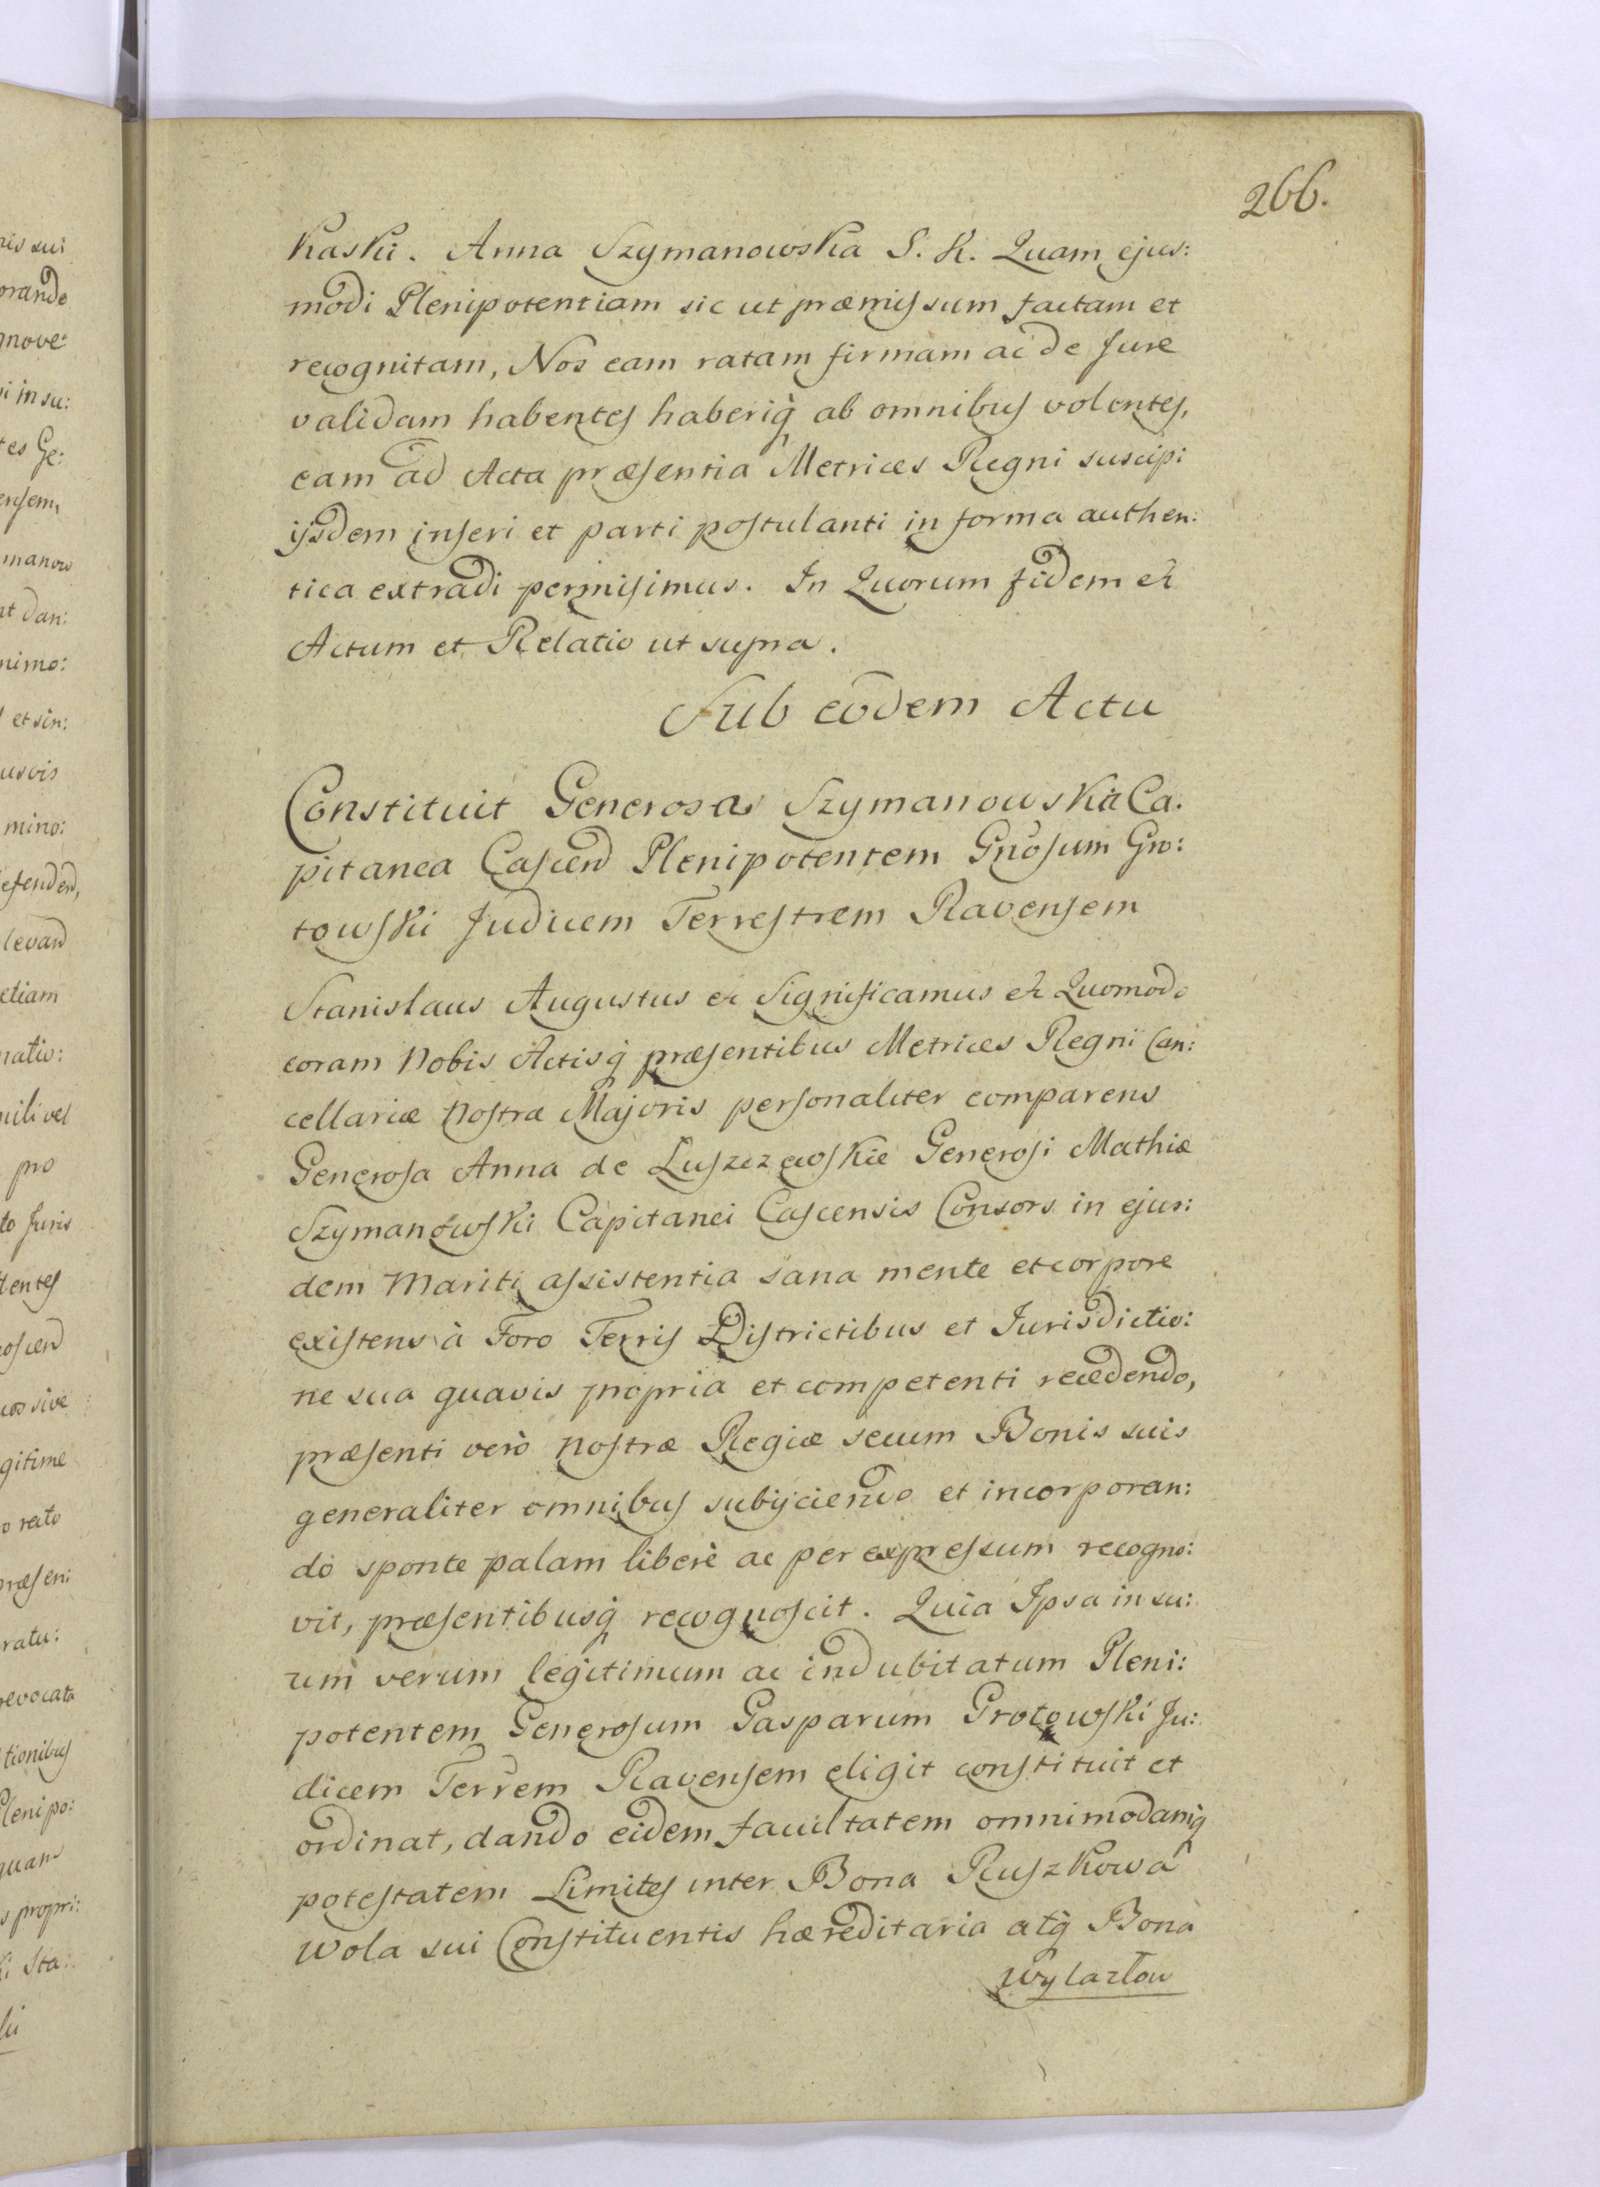 266.
Kaski. Anna Szymanowska S. K. Quam ejus:
modi Plenipotentiam sic ut præmissum factam et
recognitam, Nos eam ratam firmam ac de Jure
validam habentes haberiq̃ ab omnibus volentes,
eam ad Acta præsentia Metrices Regni suscipi
ijsdem inseri et parti postulanti in forma authen:
tica extradi permisimus. In Quorum fidem et
Actum et Relatio ut supra.
Sub eodem Actu
Constituit Generosa Szymanowska Ca.
pitanea Cascen Plenipotentem Gnõsum Gro:
towski Judicem Terrestrem Ravensem
Stanislaus Augustus et Significamus et Quomodo
coram Nobis Actisq̃ præsentibus Metrices Regni Can:
cellariæ Nostræ Majoris personaliter comparens
Generosa Anna de Luszczewskie Generosi Mathiæ
Szymanowski Capitanei Cascensis Consors in ejus:
dem Mariti assistentia sana mente et corpore
existens à Foro Terris Districtibus et Jurisdictio:
ne sua quavis propria et competenti recedendo,
præsenti verò Nostræ Regiæ secum Bonis suis
generaliter omnibus subijciendo et incorporan:
do sponte palam liberè ac per expressum recogno:
vit, præsentibusq̃ recognoscit. Quia Ipsa in su:
um verum legitimum ac indubitatum Pleni:
potentem Generosum Gasparum Grotowski Ju:
dicem Terrem Ravensem eligit constituit et
ordinat, dando eidem facultatem omnimodamq̃
potestatem Limites inter Bona Ruszkowa
Wola sui Constituentis hæreditaria atq̃ Bona
Wylazłow
nis sui
orande
gnove:
i in su:
tes Ge:
ensem,
manow
nt dan:
nimo:
et sin:
usvis
mino:
efenden,
levand
etiam
natio:
nili vel
pro
to Juris
lentes
oscend
uos sive
gitime
o rato
ræsen:
ratu:
revocata
tionibus
Plenipo:
quam
s propri:
i Sta: